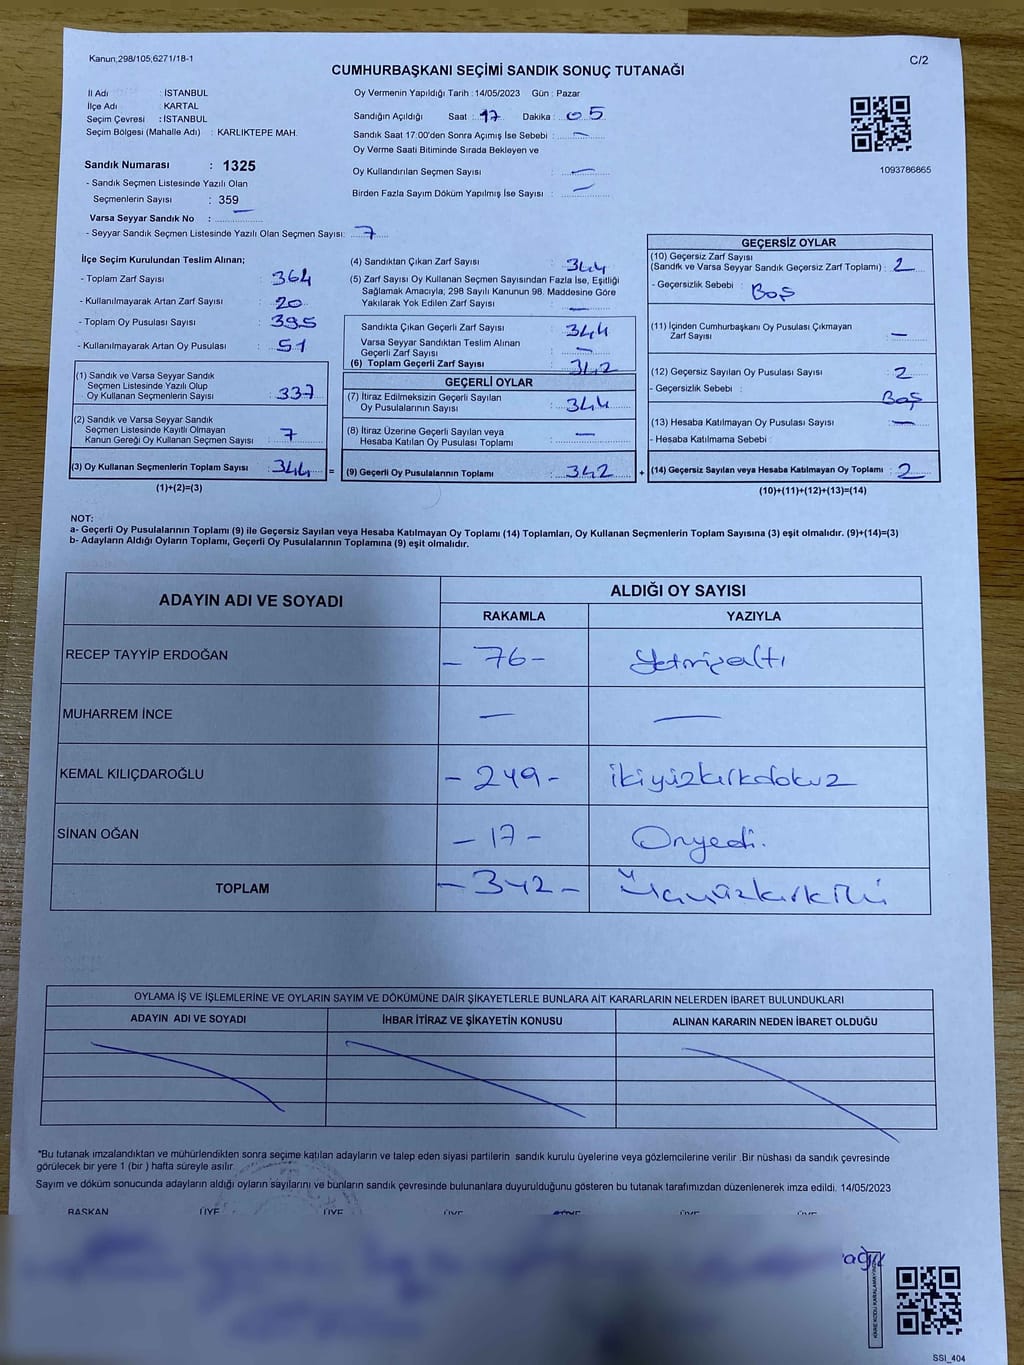 Kanun;298/105;6271/18-1
C/2
CUMHURBAŞKANI SEÇİMİ SANDIK SONUÇ TUTANAĞI
İl Adı : İSTANBUL
İlçe Adı : KARTAL
Seçim Çevresi : İSTANBUL
Seçim Bölgesi (Mahalle Adı) : KARLIKTEPE MAH.
Sandık Numarası : 1325
- Sandık Seçmen Listesinde Yazılı Olan
Seçmenlerin Sayısı : 359
Varsa Seyyar Sandık No : —
- Seyyar Sandık Seçmen Listesinde Yazılı Olan Seçmen Sayısı: 7
Oy Vermenin Yapıldığı Tarih : 14/05/2023 Gün : Pazar
Sandığın Açıldığı Saat : 17 Dakika : 05
Sandık Saat 17:00'den Sonra Açımış İse Sebebi : —
Oy Verme Saati Bitiminde Sırada Bekleyen ve
Oy Kullandırılan Seçmen Sayısı : —
Birden Fazla Sayım Döküm Yapılmış İse Sayısı : —
1093786865
İlçe Seçim Kurulundan Teslim Alınan;
- Toplam Zarf Sayısı : 364
- Kullanılmayarak Artan Zarf Sayısı : 20
- Toplam Oy Pusulası Sayısı : 395
- Kullanılmayarak Artan Oy Pusulası : 51
(1) Sandık ve Varsa Seyyar Sandık
Seçmen Listesinde Yazılı Olup
Oy Kullanan Seçmenlerin Sayısı : 337
(2) Sandık ve Varsa Seyyar Sandık
Seçmen Listesinde Kayıtlı Olmayan
Kanun Gereği Oy Kullanan Seçmen Sayısı : 7
(3) Oy Kullanan Seçmenlerin Toplam Sayısı : 344 =
(1)+(2)=(3)
(4) Sandıktan Çıkan Zarf Sayısı : 344
(5) Zarf Sayısı Oy Kullanan Seçmen Sayısından Fazla İse, Eşitliği
Sağlamak Amacıyla; 298 Sayılı Kanunun 98. Maddesine Göre
Yakılarak Yok Edilen Zarf Sayısı : —
Sandıkta Çıkan Geçerli Zarf Sayısı : 344
Varsa Seyyar Sandıktan Teslim Alınan
Geçerli Zarf Sayısı : —
(6) Toplam Geçerli Zarf Sayısı : 342
GEÇERLİ OYLAR
(7) İtiraz Edilmeksizin Geçerli Sayılan
Oy Pusulalarının Sayısı : 344
(8) İtiraz Üzerine Geçerli Sayılan veya
Hesaba Katılan Oy Pusulası Toplamı : —
(9) Geçerli Oy Pusulalarının Toplamı : 342 +
GEÇERSİZ OYLAR
(10) Geçersiz Zarf Sayısı
(Sandık ve Varsa Seyyar Sandık Geçersiz Zarf Toplamı) : 2
- Geçersizlik Sebebi : Boş
(11) İçinden Cumhurbaşkanı Oy Pusulası Çıkmayan
Zarf Sayısı : —
(12) Geçersiz Sayılan Oy Pusulası Sayısı : 2
- Geçersizlik Sebebi : Boş
(13) Hesaba Katılmayan Oy Pusulası Sayısı : —
- Hesaba Katılmama Sebebi :
(14) Geçersiz Sayılan veya Hesaba Katılmayan Oy Toplamı : 2
(10)+(11)+(12)+(13)=(14)
NOT:
a- Geçerli Oy Pusulalarının Toplamı (9) ile Geçersiz Sayılan veya Hesaba Katılmayan Oy Toplamı (14) Toplamları, Oy Kullanan Seçmenlerin Toplam Sayısına (3) eşit olmalıdır. (9)+(14)=(3)
b- Adayların Aldığı Oyların Toplamı, Geçerli Oy Pusulalarının Toplamına (9) eşit olmalıdır.
ADAYIN ADI VE SOYADI
ALDIĞI OY SAYISI
RAKAMLA YAZIYLA
RECEP TAYYİP ERDOĞAN - 76 - Yetmişaltı
MUHARREM İNCE — —
KEMAL KILIÇDAROĞLU - 249 - ikiyüzkırkdokuz
SİNAN OĞAN - 17 - Onyedi.
TOPLAM - 342 - Üçyüzkırkiki
OYLAMA İŞ VE İŞLEMLERİNE VE OYLARIN SAYIM VE DÖKÜMÜNE DAİR ŞİKAYETLERLE BUNLARA AİT KARARLARIN NELERDEN İBARET BULUNDUKLARI
ADAYIN ADI VE SOYADI İHBAR İTİRAZ VE ŞİKAYETİN KONUSU ALINAN KARARIN NEDEN İBARET OLDUĞU
*Bu tutanak imzalandıktan ve mühürlendikten sonra seçime katılan adayların ve talep eden siyasi partilerin sandık kurulu üyelerine veya gözlemcilerine verilir .Bir nüshası da sandık çevresinde
görülecek bir yere 1 (bir ) hafta süreyle asılır.
Sayım ve döküm sonucunda adayların aldığı oyların sayılarını ve bunların sandık çevresinde bulunanlara duyurulduğunu gösteren bu tutanak tarafımızdan düzenlenerek imza edildi. 14/05/2023
BAŞKAN ÜYE ÜYE ÜYE ÜYE ÜYE ÜYE
SSI_404